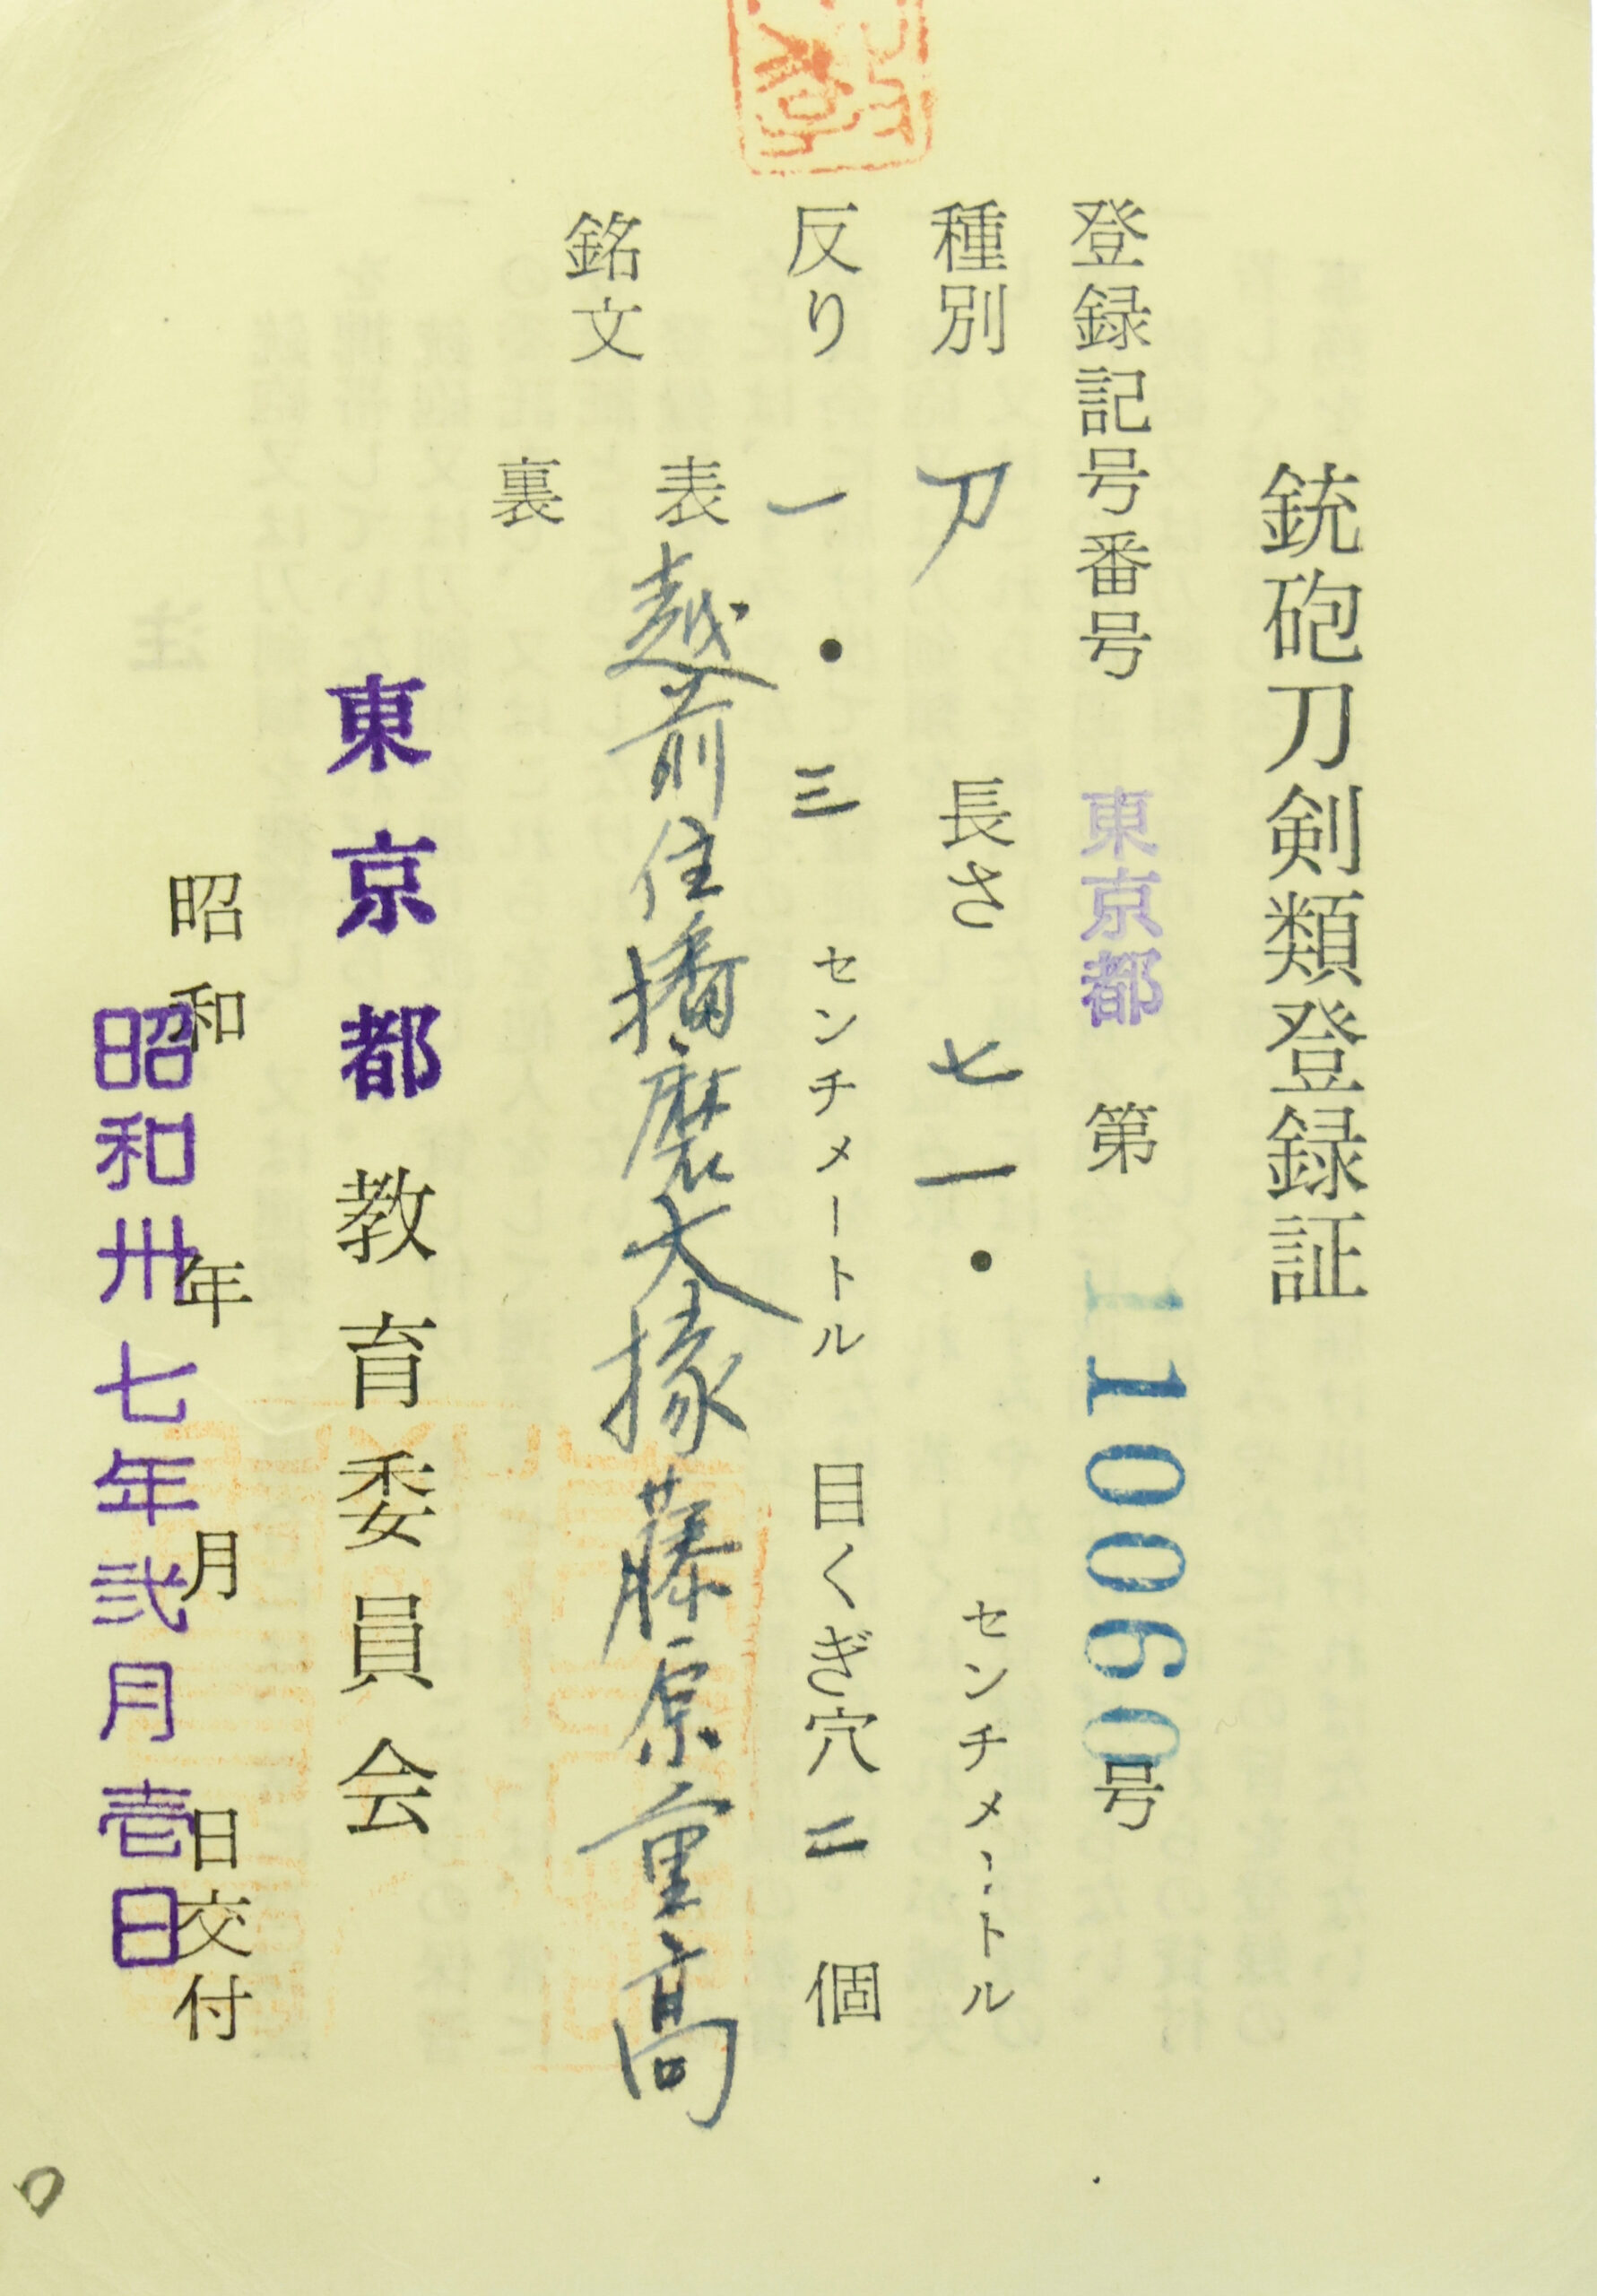 銃砲刀剣類登録証
登録記号番号 東京都 第 110060号
種別 刀 長さ 七一・ センチメートル
反り 一・三 センチメートル 目くぎ穴 二 個
銘文
表 越前住播磨大掾藤原重高
裏
東京都教育委員会
昭和 年 月 日交付
昭和卅七年弐月壱日